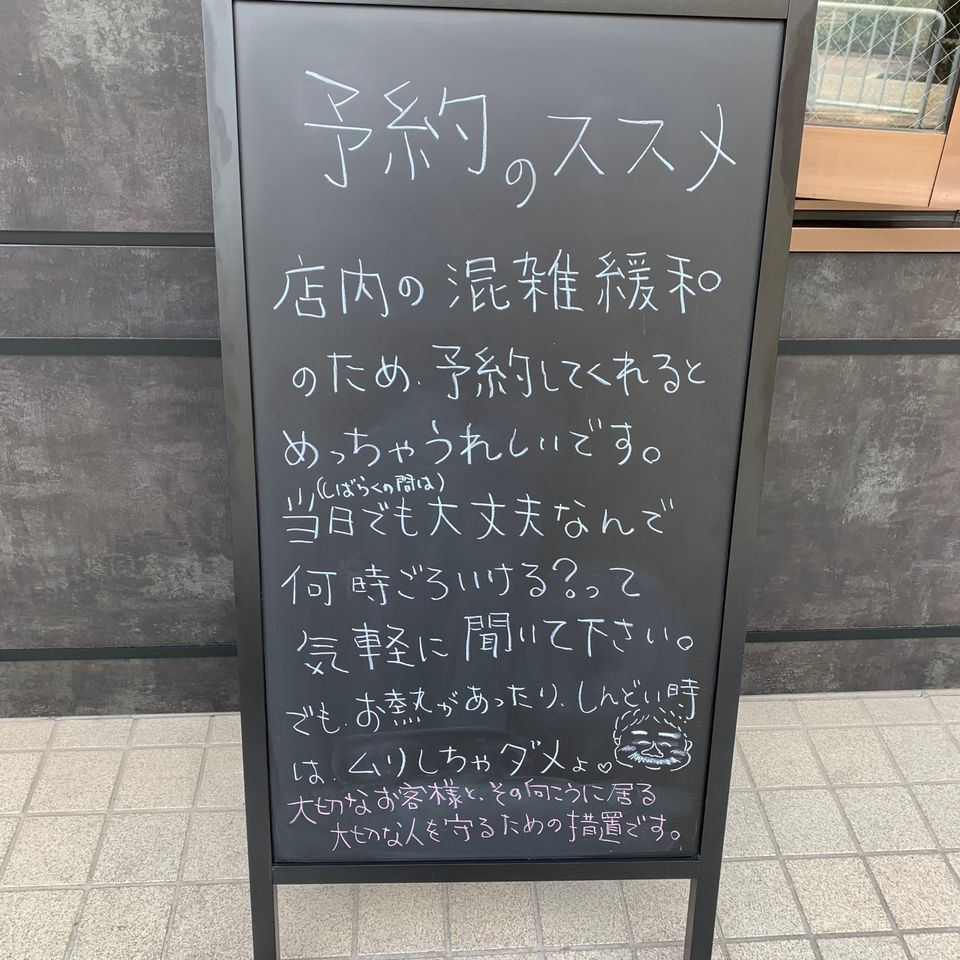 予約のススメ
店内の混雑緩和
のため、予約してくれると
めっちゃうれしいです。
(しばらくの間は)
当日でも大丈夫なんで
何時ごろいける?って
気軽に聞いて下さい。
でも、お熱があったり、しんどい時
は、ムリしちゃダメょ。♡
大切なお客様と、その向こうに居る
大切な人を守るための措置です。